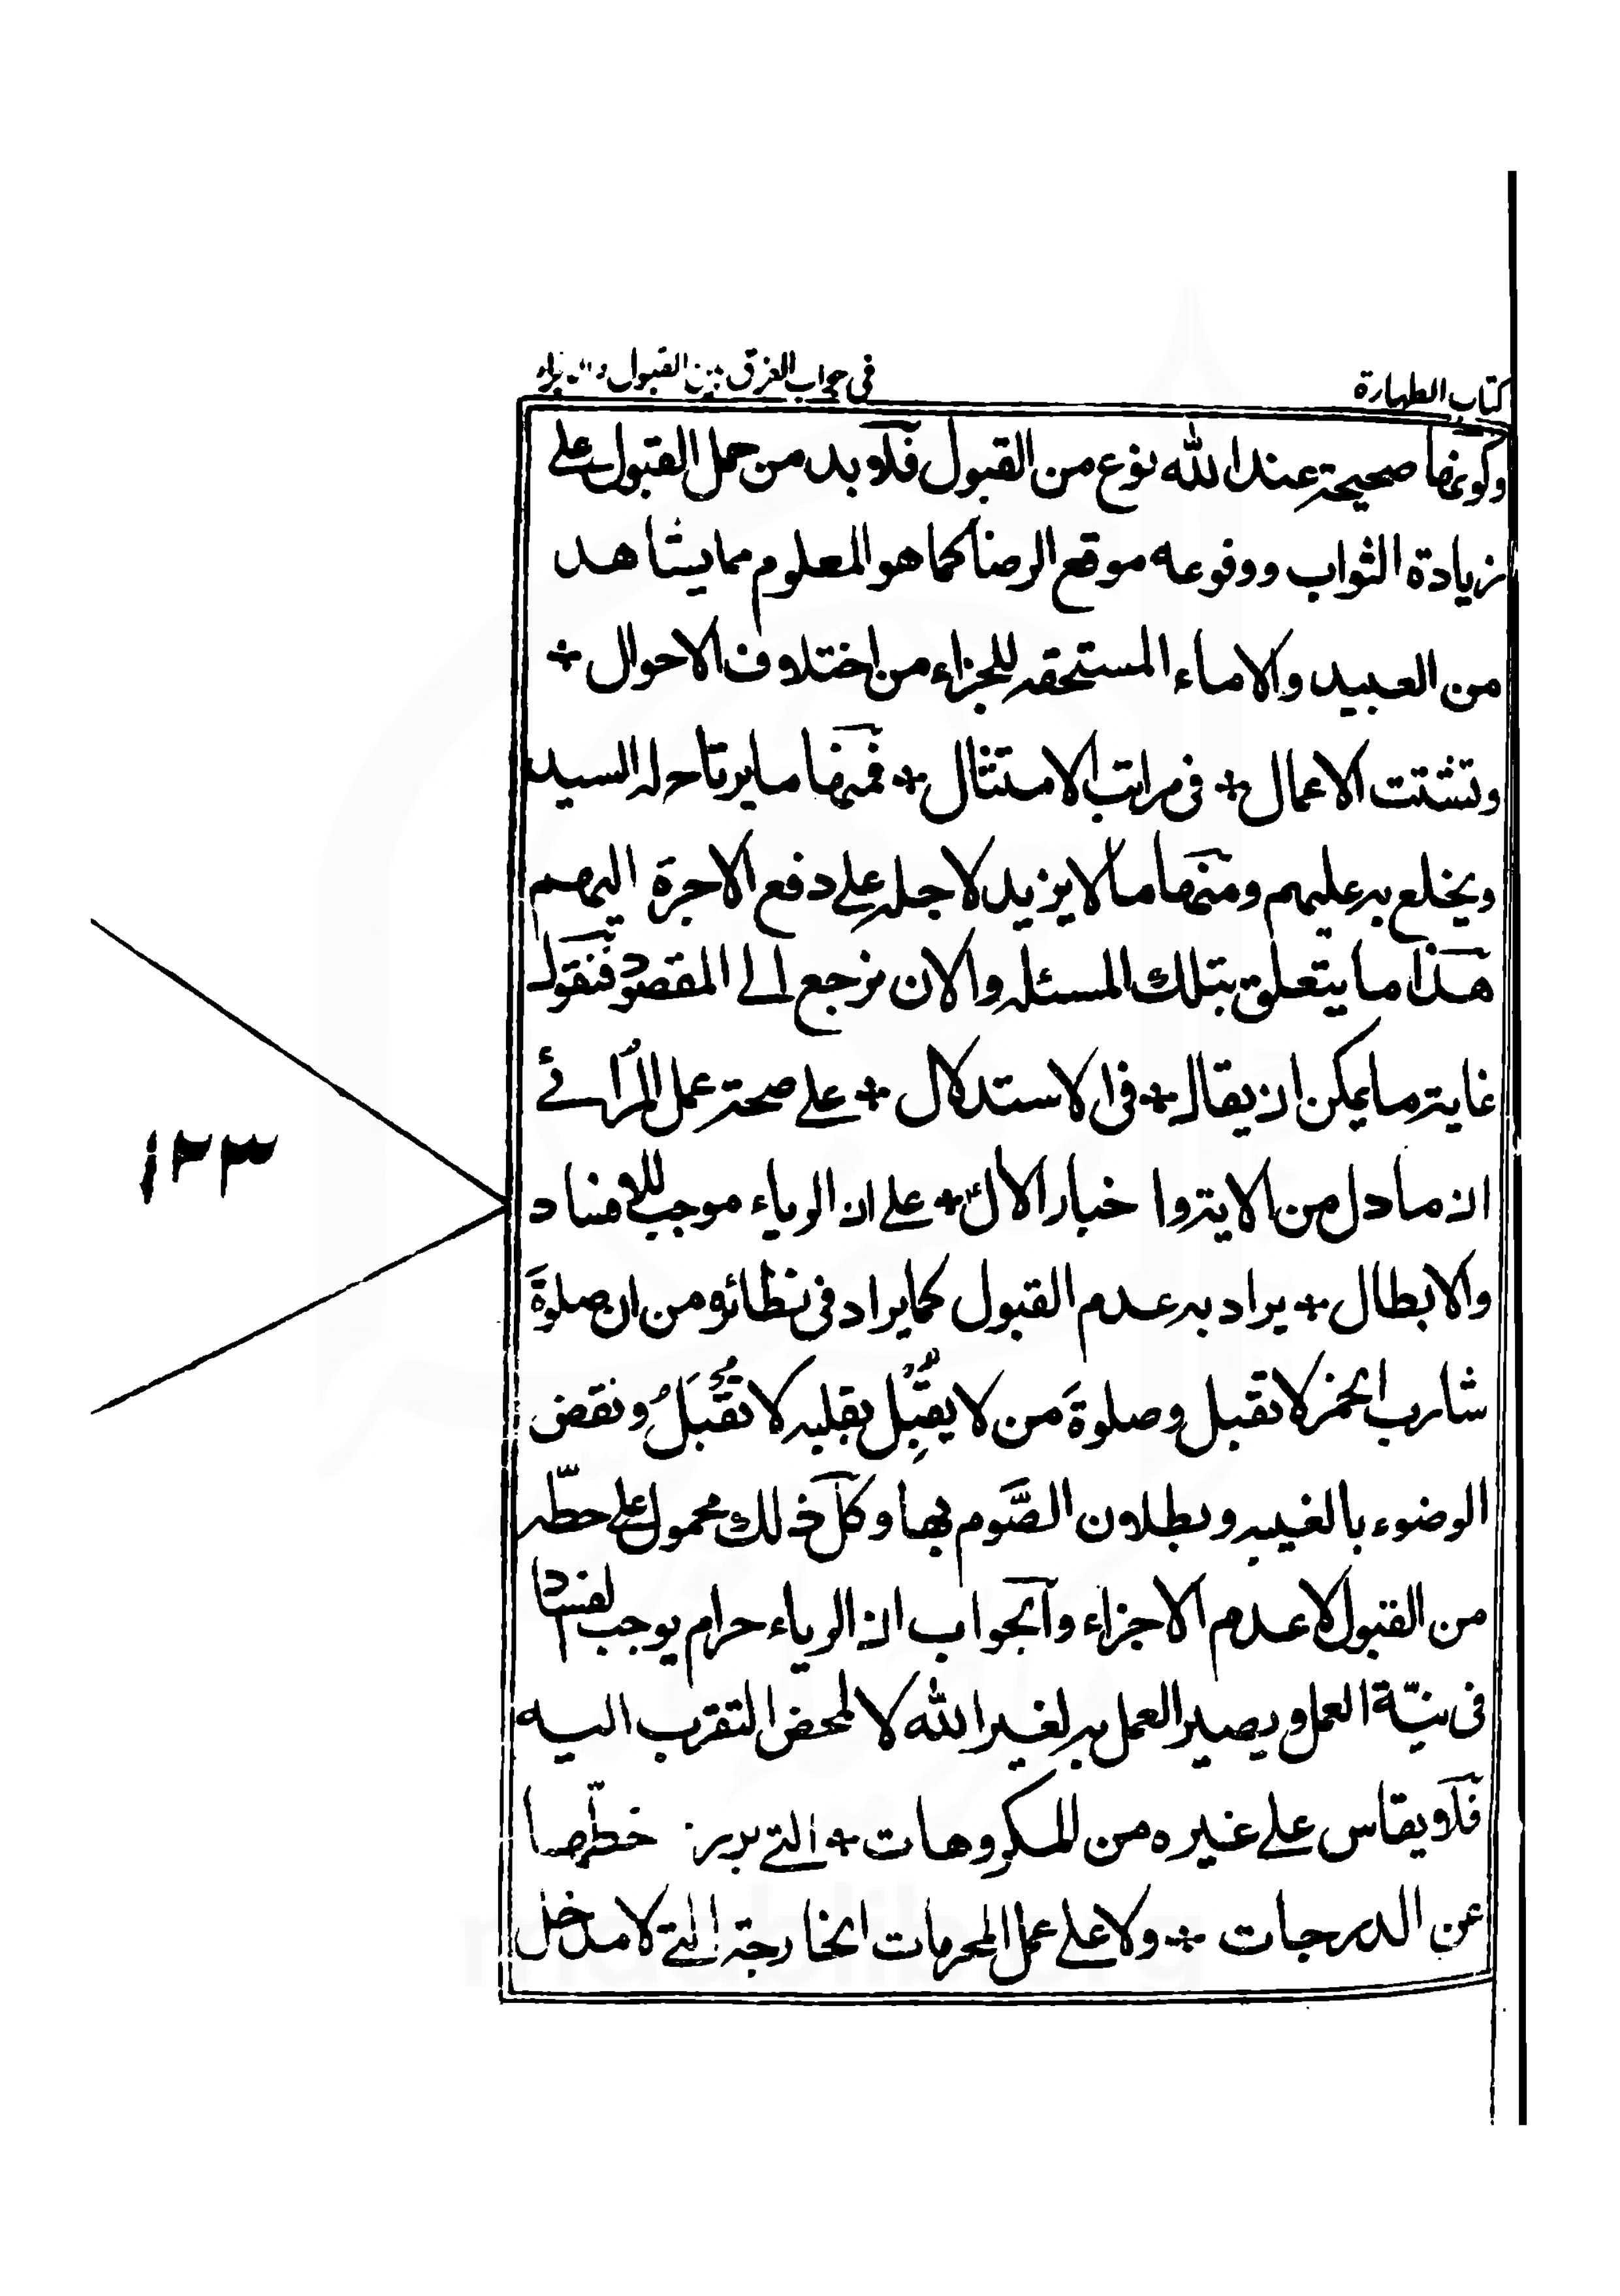 كتاب الطهارة
فى جواب الفرق بين القبول
وكونها صحيحة عند الله نوع من القبول فلا بد من حمل القبول على
زيادة الثواب ووقوعه موقع الرضا كما هو المعلوم مما يشاهد
من العبيد والاماء المستحقه للجزاء من اختلاف الاحوال ÷
وتشتت الاعمال ÷ فى مراتب الامتثال ÷ فمنها ما يرتاح له السيد
ويخلع به عليهم ومنها ما لا يزيد لاجله على دفع الاجرة اليهم
هذا ما يتعلق بتلك المسئله والان نرجع الى المقصود فنقول
غاية ما يمكن ان يقال ÷ فى الاستدلال ÷ على صحة عمل المرائے
ان ما دل من الاية وا خبار الال ÷ على ان الرياء موجب للافساد
والابطال ÷ يراد به عدم القبول كما يراد فى نظائره من ان صلوة
شارب الخمر لا تقبل وصلوة من لا يقبل بقلبه لا تقبل ونقض
الوضوء بالغيبه وبطلان الصوم بها وكل ذلك محمول على حطّه
من القبول لا عدم الاجزاء والجواب ان الرياء حرام يوجب لفساد
فى نيّة العمل ويصير العمل به لغير الله لا لمحض التقرب اليه
فلا يقاس على غيره من المكروهات ÷ التے خطّها
عن الدرجات ÷ ولا على عمل المحرمات الخارجة التے لا مدخل
١٢٣